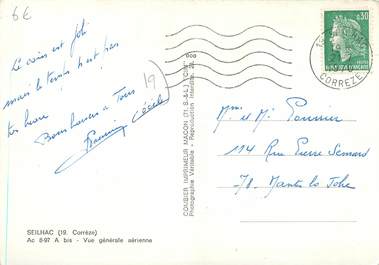 6€
Le coin est joli
mais le temps n'est pas
très beau
Bons baisers à Tous
19
Mme et Mr
114 Rue Pierre Semard
78. Mantes la Jolie
0,30
CORREZE
COMBIER IMPRIMEUR MACON (71. S.-&-L.) "CIM"
Photographie Véritable - Reproduction Interdite.
SEILHAC (19. Corrèze)
Ac 8-97 A bis - Vue générale aérienne